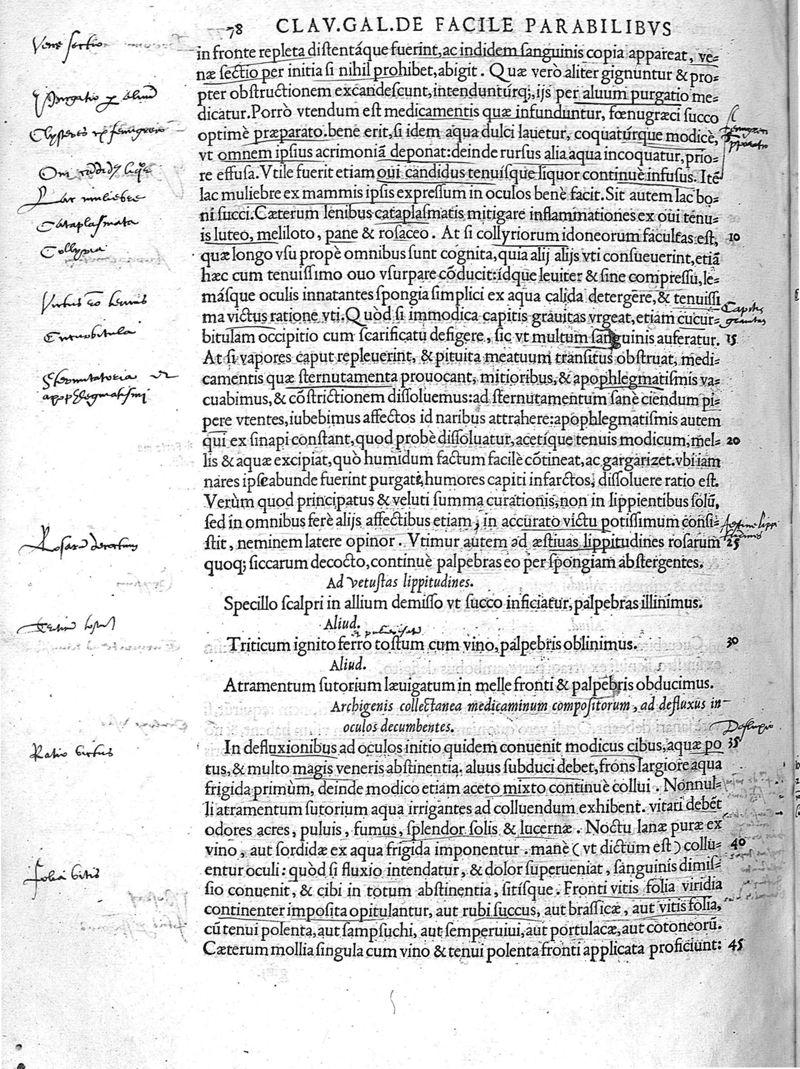 78 CLAV.GAL.DE FACILE PARABILIBVS
in fronte repleta distentáque fuerint, ac indidem sanguinis copia appareat, ve=
næ sectio per initia si nihil prohibet, abigit. Quæ verò aliter gignuntur & pro=
pter obstructionem excandescunt, intenduntúrq;, ijs per aluum purgatio me=
dicatur. Porrò vtendum est medicamentis quæ infunduntur, fœnugræci succo
optimè præparato. bene erit, si idem aqua dulci lauetur, coquatúrque modicè,
vt omnem ipsius acrimoniã deponat: deinde rursus alia aqua incoquatur, prio=
re effusa. Vtile fuerit etiam oui candidus tenuisque liquor continuè infusus. Itẽ
lac muliebre ex mammis ipsis expressum in oculos benè facit. Sit autem lac bo=
ni succi. Cæterum lenibus cataplasmatis mitigare inflammationes ex oui tenu=
is luteo, meliloto, pane & rosaceo. At si collyriorum idoneorum facultas est, 10
quæ longo vsu propè omnibus sunt cognita, quia alij alijs vti consueuerint, etiã
hæc cum tenuissimo ouo vsurpare cõducit: ídque leuiter & sine compressu, le=
másque oculis innatantes spongia simplici ex aqua calida detergere, & tenuissi
ma victus ratione vti. Quòd si immodica capitis grauitas vrgeat, etiam cucur=
bitulam occipitio cum scarificatu defigere, sic vt multum sanguinis auferatur. 15
At si vapores caput repleuerint, & pituita meatuum transitus obstruat, medi=
camentis quæ sternutamenta prouocant, mitioribus, & apophlegmatismis va=
cuabimus, & cõstrictionem dissoluemus: ad sternutamentum sanè ciendum pi=
pere vtentes, iubebimus affectos id naribus attrahere: apophlegmatismis autem
qui ex sinapi constant, quod probè dissoluatur, acetíque tenuis modicum, mel= 20
lis & aquæ excipiat, quò humidum factum facilè cõtineat, ac gargarizet. vbi iam
nares ipsæ abunde fuerint purgatæ, humores capiti infarctos, dissoluere ratio est.
Verùm quod principatus & veluti summa curationis, non in lippientibus solũ,
sed in omnibus ferè alijs affectibus etiam, in accurato victu potissimum consi=
stit, neminem latere opinor. Vtimur autem ad æstiuas lippitudines rosarum 25
quoq; siccarum decocto, continuè palpebras eo per spongiam abstergentes.
Ad vetustas lippitudines.
Specillo scalpri in allium demisso vt succo inficiatur, palpebras illinimus.
Aliud.
Triticum ignito ferro tostum cum vino, palpebris oblinimus. 30
Aliud.
Atramentum sutorium læuigatum in melle fronti & palpebris obducimus.
Archigenis collectanea medicaminum compositorum, ad defluxus in
oculos decumbentes.
In defluxionibus ad oculos initio quidem conuenit modicus cibus, aquæ po 35
tus, & multo magis veneris abstinentia. aluus subduci debet, frons largiore aqua
frigida primùm, deinde modico etiam aceto mixto continuè collui. Nonnul=
li atramentum sutorium aqua irrigantes ad colluendum exhibent. vitari debẽt
odores acres, puluis, fumus, splendor solis & lucernæ. Noctu lanæ puræ ex
vino, aut sordidæ ex aqua frigida imponentur. manè (vt dictum est) collu= 40
entur oculi: quòd si fluxio intendatur, & dolor superueniat, sanguinis dimis=
sio conuenit, & cibi in totum abstinentia, sitísque. Fronti vitis folia viridia
continenter imposita opitulantur, aut rubi succus, aut brassicæ, aut vitis folia,
cũ tenui polenta, aut sampsuchi, aut semperuiui, aut portulacæ, aut cotoneorũ.
Cæterum mollia singula cum vino & tenui polenta fronti applicata proficiunt: 45
Venæ sectio
Lac muliebre
Cataplasmata
Collyria
Cucurbitula
Sternutatoria
apophlegmatismi
Rosarum decoctum
Ratio victus
folia vitis
Capitis
grauitas
Defluxio